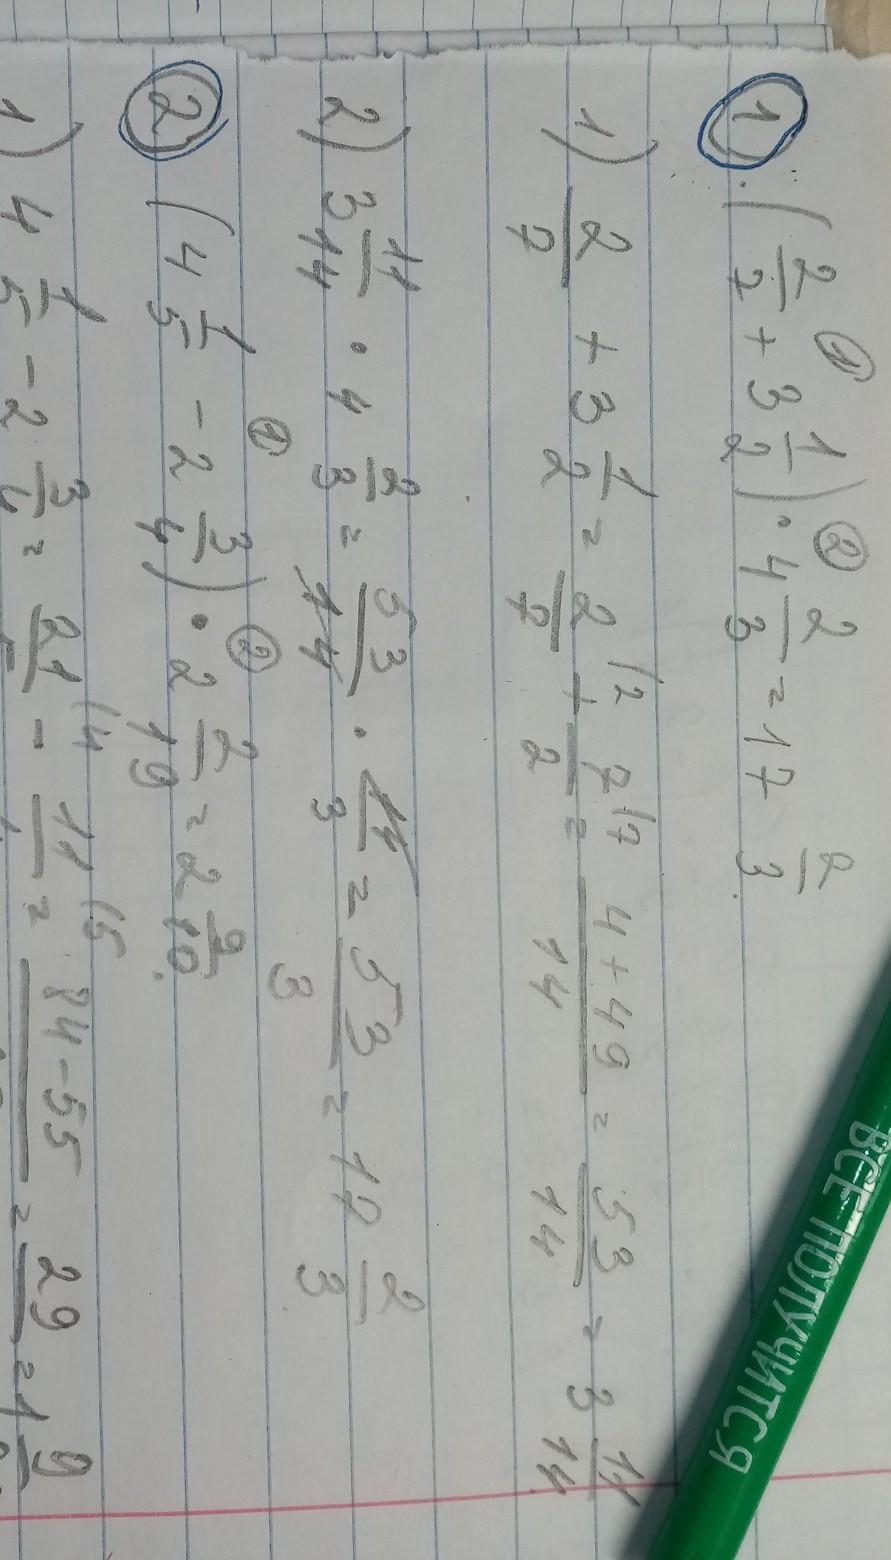 1. (2/7 + 3 1/2) · 4 2/3 = 17 2/3.
1) 2/7 + 3 1/2 = 2/7 + 7/2 = (4+49)/14 = 53/14 = 3 11/14
2) 3 11/14 · 4 2/3 = 53/14 · 14/3 = 53/3 = 17 2/3
2 (4 1/5 - 2 3/4) · 2 2/19 = 2 9/10.
1) 4 1/5 - 2 3/4 = 21/5 - 11/ = 84-55/ = 29/ = 1 9/
ВСЕ ПОЛУЧИТСЯ